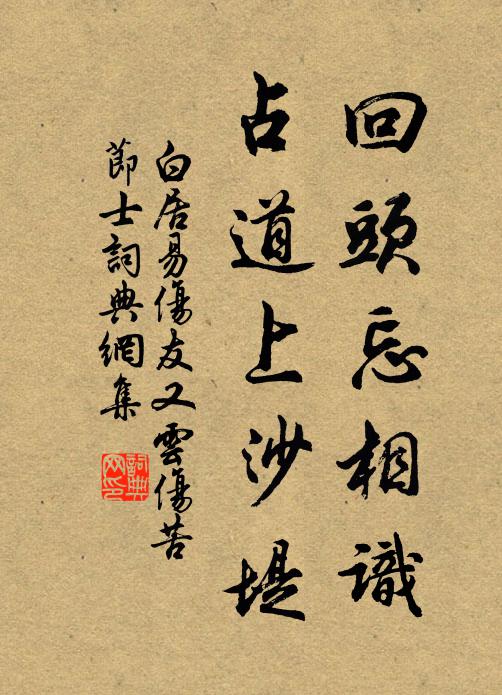 回頭忘相識
占道上沙堤
白居易傷友又雲傷苦
節士詞典網集
詞典
网印